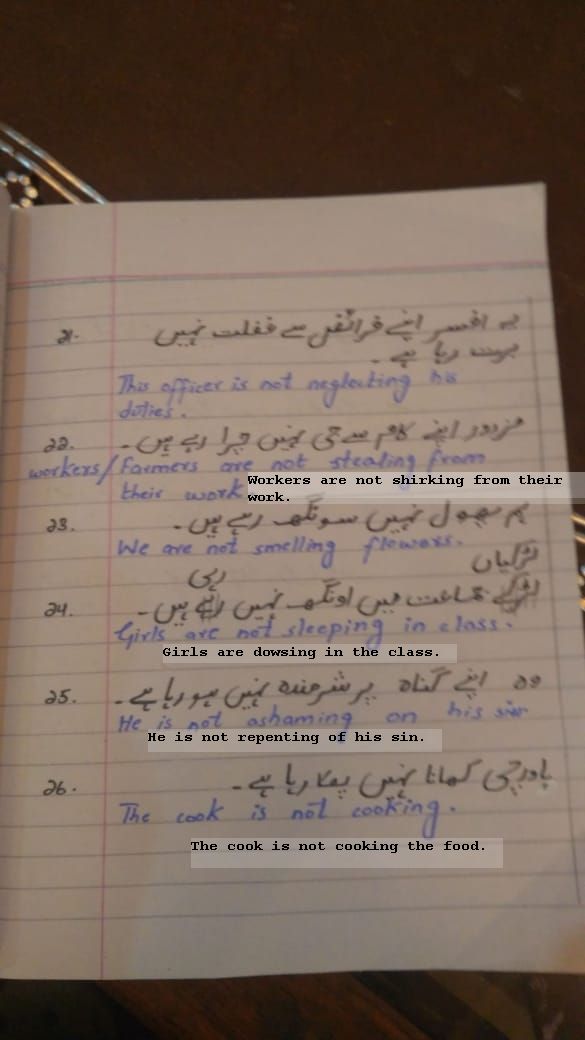 21. یہ افسر اپنے فرائض سے غفلت نہیں
برت رہا ہے۔
This officer is not neglecting his
duties.
22. مزدور اپنے کام سے جی نہیں چرا رہے ہیں۔
workers/Farmers are not stealing from
their work
Workers are not shirking from their
work.
23. ہم پھول نہیں سونگھ رہے ہیں۔
We are not smelling flowers.
لڑکیاں
رہی
24. لڑکے جماعت میں اونگھ نہیں رہے ہیں۔
Girls are not sleeping in class.
Girls are dowsing in the class.
25. وہ اپنے گناہ پر شرمندہ نہیں ہو رہا ہے۔
He is not ashaming on his sin
He is not repenting of his sin.
26. باورچی کھانا نہیں پکا رہا ہے۔
The cook is not cooking.
The cook is not cooking the food.